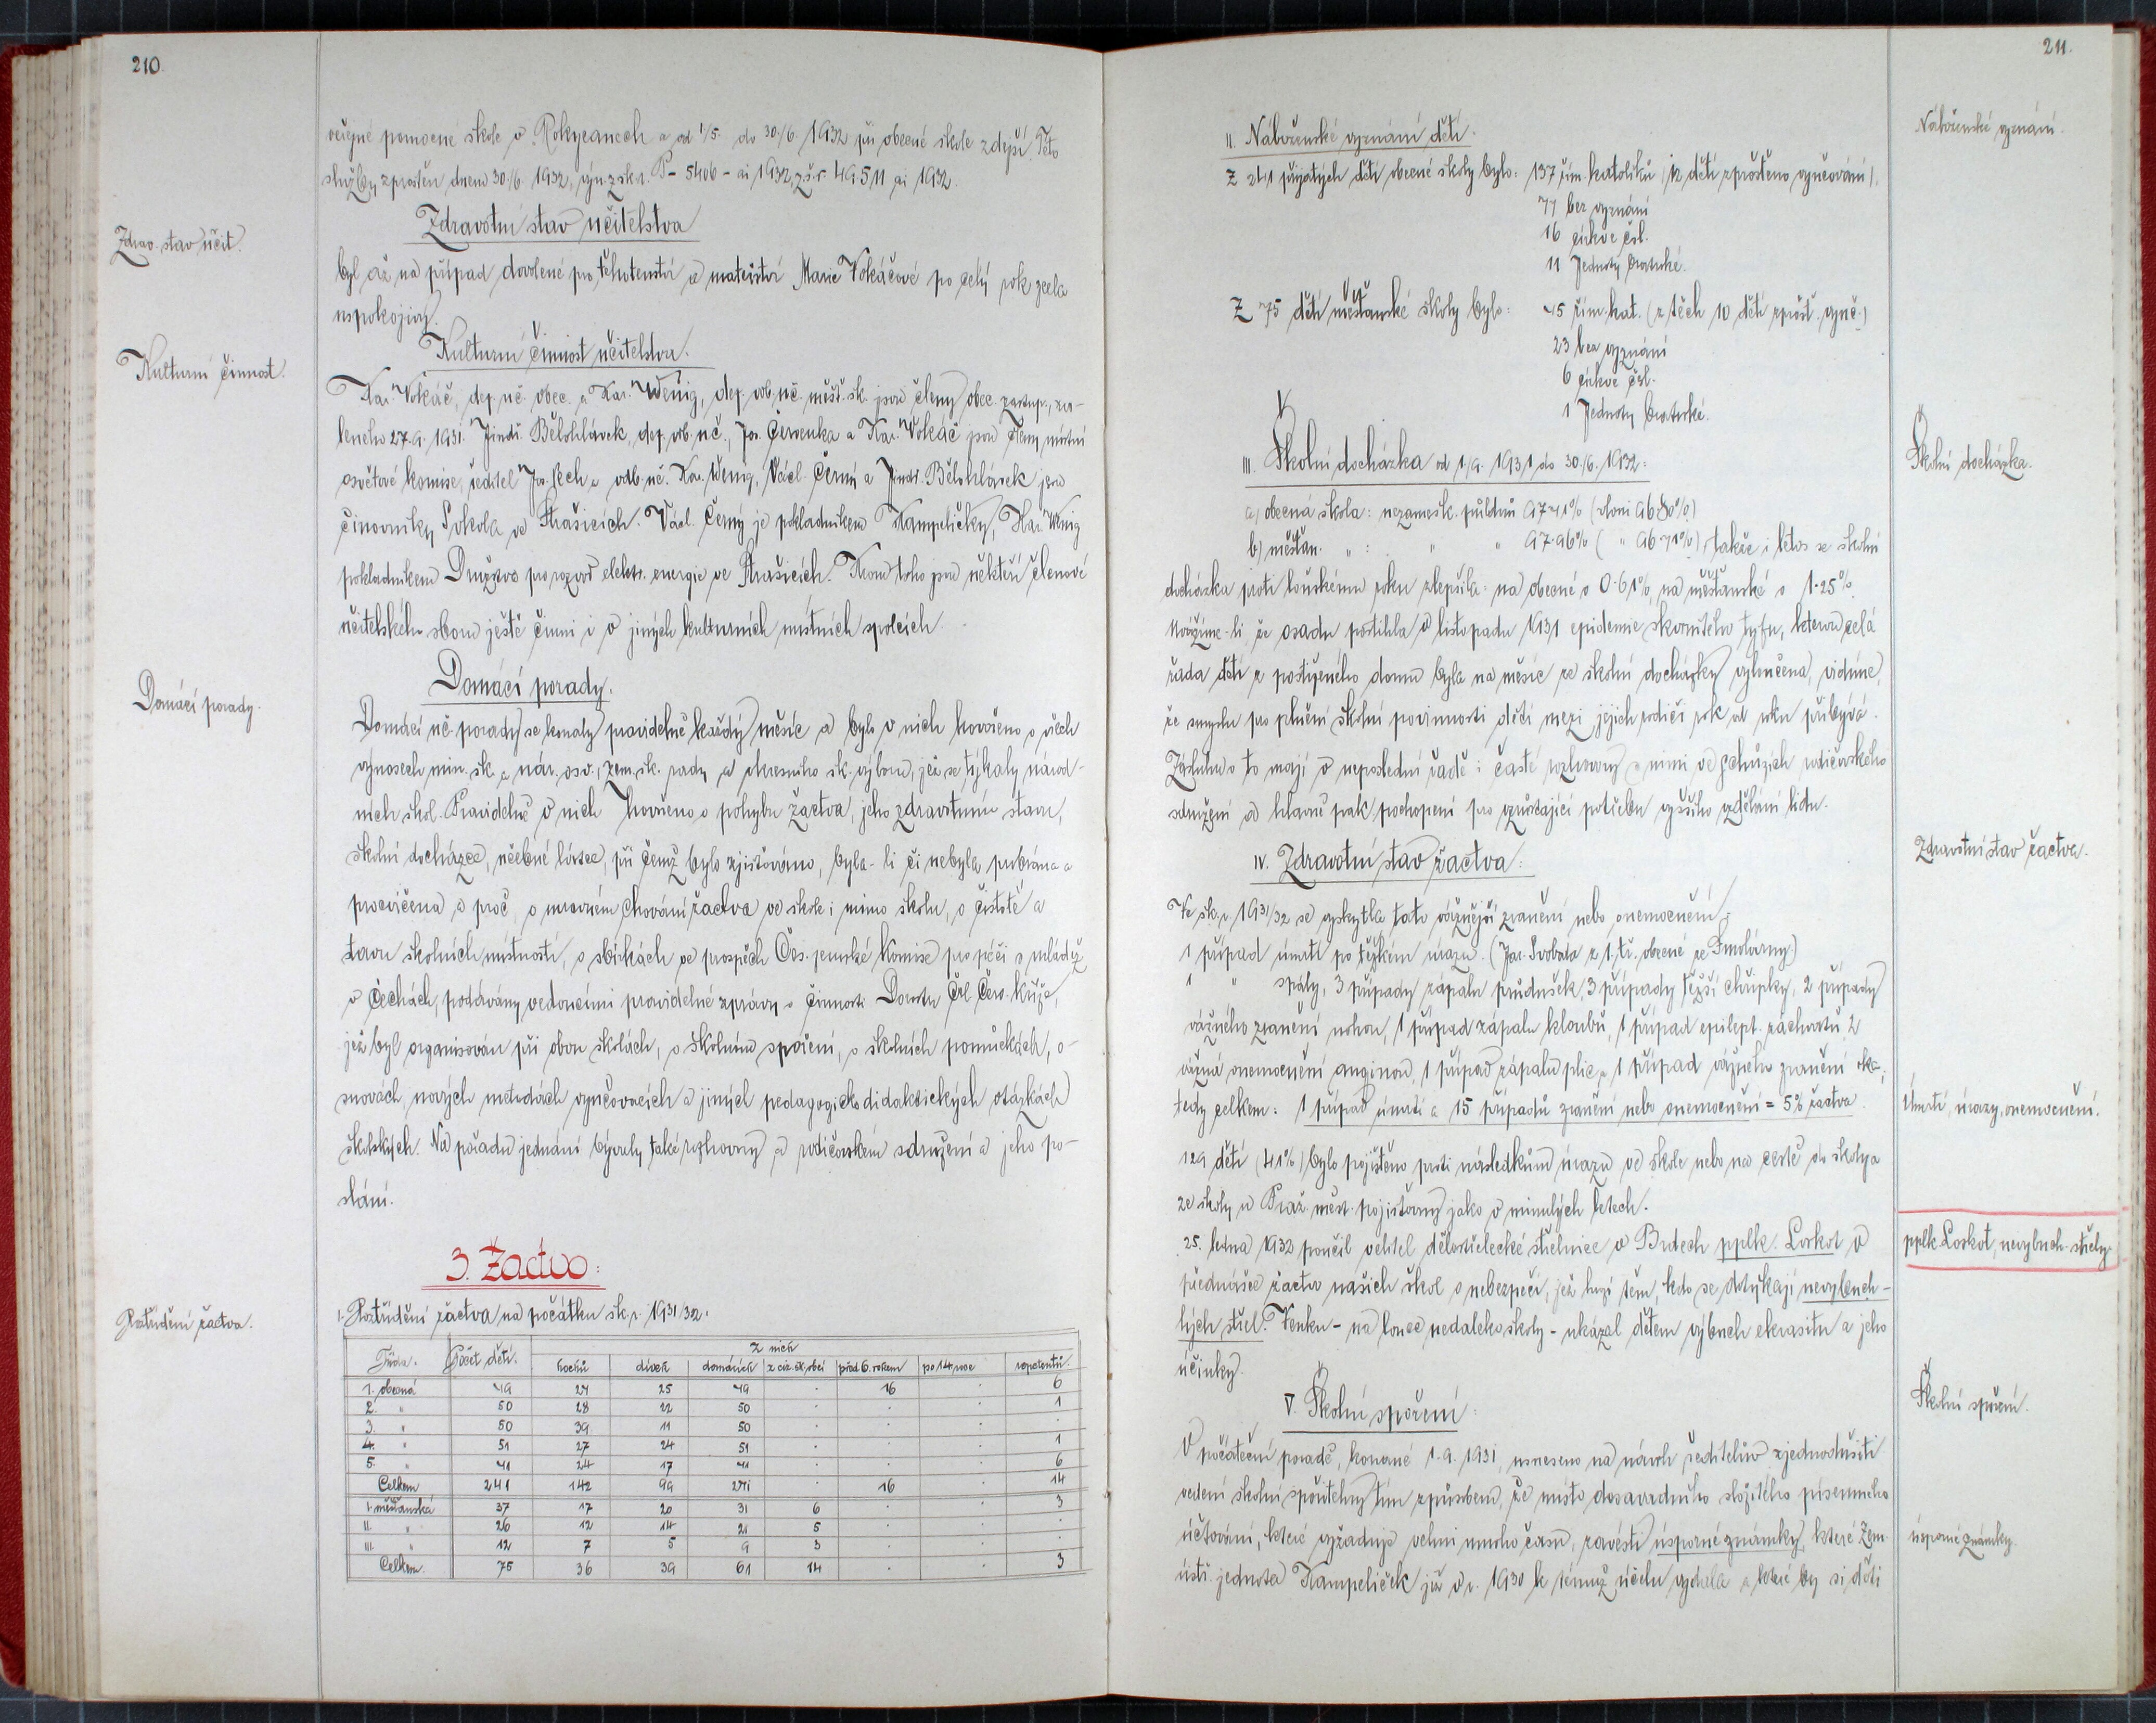 210.
veřejné pomocné škole v Rokycanech a od 1/5. do 30./6. 1932 při obecné škole zdejší. Této
služby zproštěn dnem 30./6. 1932, výn. z. šk. r. B - 5406 - ai 1932, z. š. r. 49511 ai 1932.
Zdravotní stav učitelstva
Zdrav. stav učit.
byl až na případ dovolené pro těhotenství a mateřství Marie Vokáčové po celý rok zcela
uspokojivý.
Kulturní činnost učitelstva.
Kulturní činnost.
Kar. Vokáč, def. uč. obec. a Kar. Wenig, def. odb. uč. měšť. šk. jsou členy obec. zastup., zvo-
leného 27. 9. 1931. Jindř. Bělohlávek, def. odb. uč., Jos. Červenka a Kar. Vokáč jsou členy místní
osvětové komise, ředitel Jos. Pech a odb. uč. Kar. Wenig, Václ. Černý a Jindř. Bělohlávek jsou
činovníky Sokola ve Strašicích. Václ. Černý je pokladníkem Kampeličky, Kar. Wenig
pokladníkem Družstva pro rozvod elektr. energie ve Strašicích. Kromě toho jsou někteří členové
učitelského sboru ještě činni i v jiných kulturních místních spolcích.
Domácí porady.
Domácí porady.
Domácí uč. porady se konaly pravidelně každý měsíc a bylo v nich hovořeno o všech
výnosech min. šk. a nár. osv., zem. šk. rady a okresního šk. výboru, jež se týkaly národ-
ních škol. Pravidelně v nich hovořeno o pohybu žactva, jeho zdravotním stavu,
školní docházce, učebné látce, při čemž bylo zjišťováno, byla-li či nebyla probrána a
procvičena a proč, o mravném chování žactva ve škole i mimo školu, o čistotě a
stavu školních místností, o sbírkách ve prospěch Čes. zemské komise pro péči o mládež
v Čechách, podávány vedoucími pravidelné zprávy o činnosti Dorostu Čsl. Červ. kříže,
jež byl organisován při obou školách, o školním spoření, o školních pomůckách, o-
snovách, nových metodách vyučovacích a jiných pedagogicko didaktických otázkách
školských. Na pořadu jednání bývaly také rozhovory o rodičovském sdružení a jeho po-
slání.
3. Žactvo:
Roztřídění žactva.
I. Roztřídění žactva na počátku šk. r. 1931/32.
Třída. Počet dětí. z nich
hochů dívek domácích z ciz. šk. obcí před 6. rokem po 14. roce repetentů.
1. obecná 49 24 25 49 . 16 . 6
2. " 50 28 22 50 . . . 1
3. " 50 39 11 50 . . . .
4. " 51 27 24 51 . . . 1
5. " 41 24 17 41 . . . 6
Celkem 241 142 99 241 16 14
I. měšťanská 37 17 20 31 6 . . 3
II. " 26 12 14 21 5 . . .
III. " 12 7 5 9 3 . . .
Celkem. 75 36 39 61 14 . . 3
211.
Náboženské vyznání.
II. Náboženské vyznání dětí.
Z 241 přijatých dětí obecné školy bylo: 137 řím. katolíků (12 dětí zproštěno vyučování),
77 bez vyznání
16 církve čsl.
11 Jednoty bratrské.
Z 75 dětí měšťanské školy bylo: 45 řím. kat. (z těch 10 dětí zprošť. vyuč.)
23 bez vyznání
6 církve čsl.
1 Jednoty bratrské.
Školní docházka.
III. Školní docházka od 1./9. 1931 do 30./6. 1932:
a) obecná škola: nezamešk. půldnů 97·41% (vloni 96·80%)
b) měšťan. " : " " 97·96% ( " 96·71%) takže i letos se školní
docházka proti loňskému roku zlepšila: na obecné o 0·61%, na měšťanské o 1·25%.
Uvážíme-li, že osadu postihla v listopadu 1931 epidemie skvrnitého tyfu, kterou celá
řada dětí z postiženého domu byla na měsíc ze školní docházky vyloučena, vidíme,
že smyslu pro plnění školní povinnosti dětí mezi jejich rodiči rok od roku přibývá.
Zásluhu o to mají v neposlední řadě i časté rozhovory s nimi ve schůzích rodičovského
sdružení a hlavně pak pochopení pro vzrůstající potřebu vyššího vzdělání lidu.
Zdravotní stav žactva.
IV. Zdravotní stav žactva:
Ve šk. r. 1931/32 se vyskytla tato vážnější zranění nebo onemocnění:
1 případ úmrtí po těžkém úrazu. (Jar. Svoboda z 1. tř. obecné ze Smolárny.)
1 " spály, 3 případy zápalu průdušek, 3 případy těžší chřipky, 2 případy
vážného zranění nohou, 1 případ zápalu kloubů, 1 případ epilept. záchvatů, 2
vážná onemocnění anginou, 1 případ zápalu plic a 1 případ vážného zranění oka;
tedy celkem: 1 případ úmrtí a 15 případů zranění nebo onemocnění = 5% žactva.
Úmrtí, úrazy, onemocnění.
129 dětí (41%) bylo pojištěno proti následkům úrazu ve škole nebo na cestě do školy a
ze školy u Praž. měst. pojišťovny jako v minulých letech.
pplk. Loskot, nevybuch. střely.
25. ledna 1932 poučil velitel dělostřelecké střelnice v Brdech pplk. Loskot v
přednášce žactvo našich škol o nebezpečí, jež hrozí těm, kdo se dotýkají nevybuch-
lých střel. Venku - na louce nedaleko školy - ukázal dětem výbuch ekrasitu a jeho
účinky.
Školní spoření.
V. Školní spoření:
V počáteční poradě, konané 1. 9. 1931, usneseno na návrh ředitelův zjednodušiti
vedení školní spořitelny tím způsobem, že místo dosavadního složitého písemného
účtování, které vyžaduje velmi mnoho času, zavésti úsporné známky, které Zem.
úsporné známky.
ústř. jednota Kampeliček již v r. 1930 k témuž účelu vydala a které by si děti